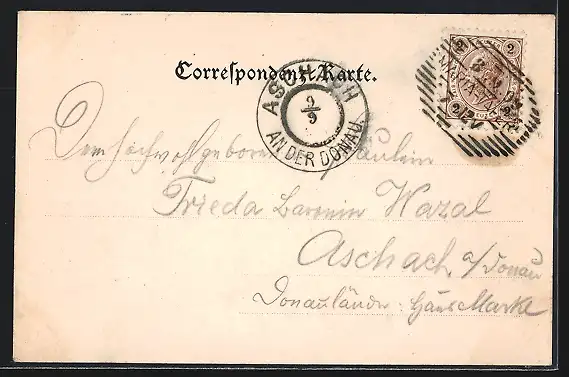 Correspondenz-Karte.
ASCHACH
9/9
AN DER DONAU
2 2
2 2
Der hochwohlgeboren Fräulein
Frieda Baronin Wazal
Aschach a/Donau
Donaulände: Haus Marke